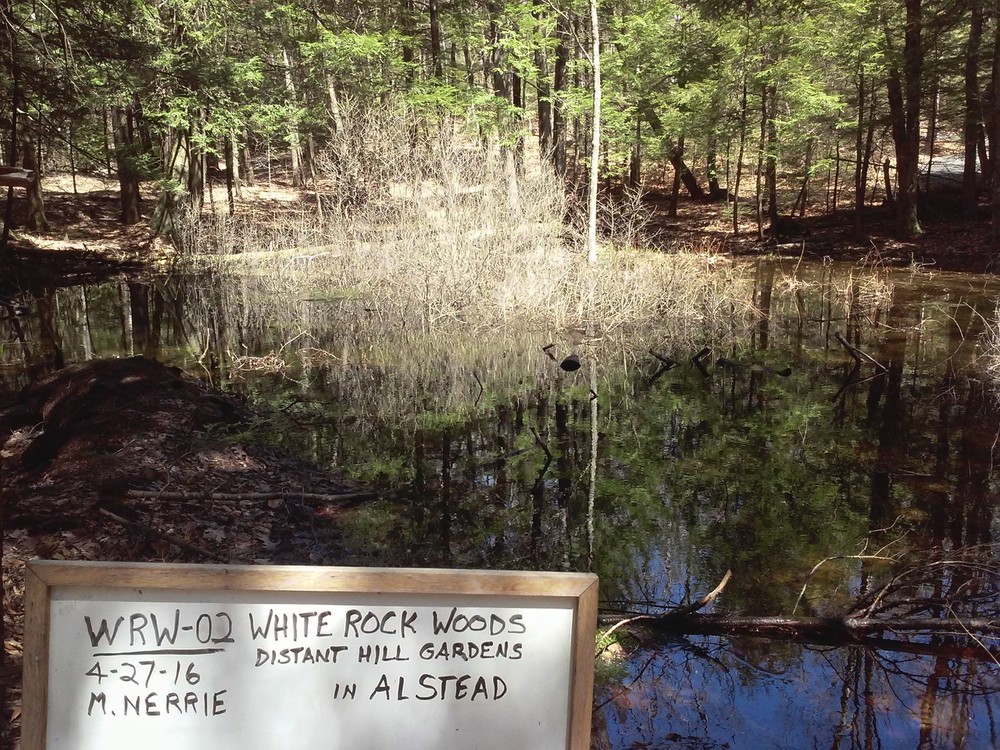 WRW-02 WHITE ROCK WOODS
4-27-16 DISTANT HILL GARDENS
M. NERRIE IN ALSTEAD